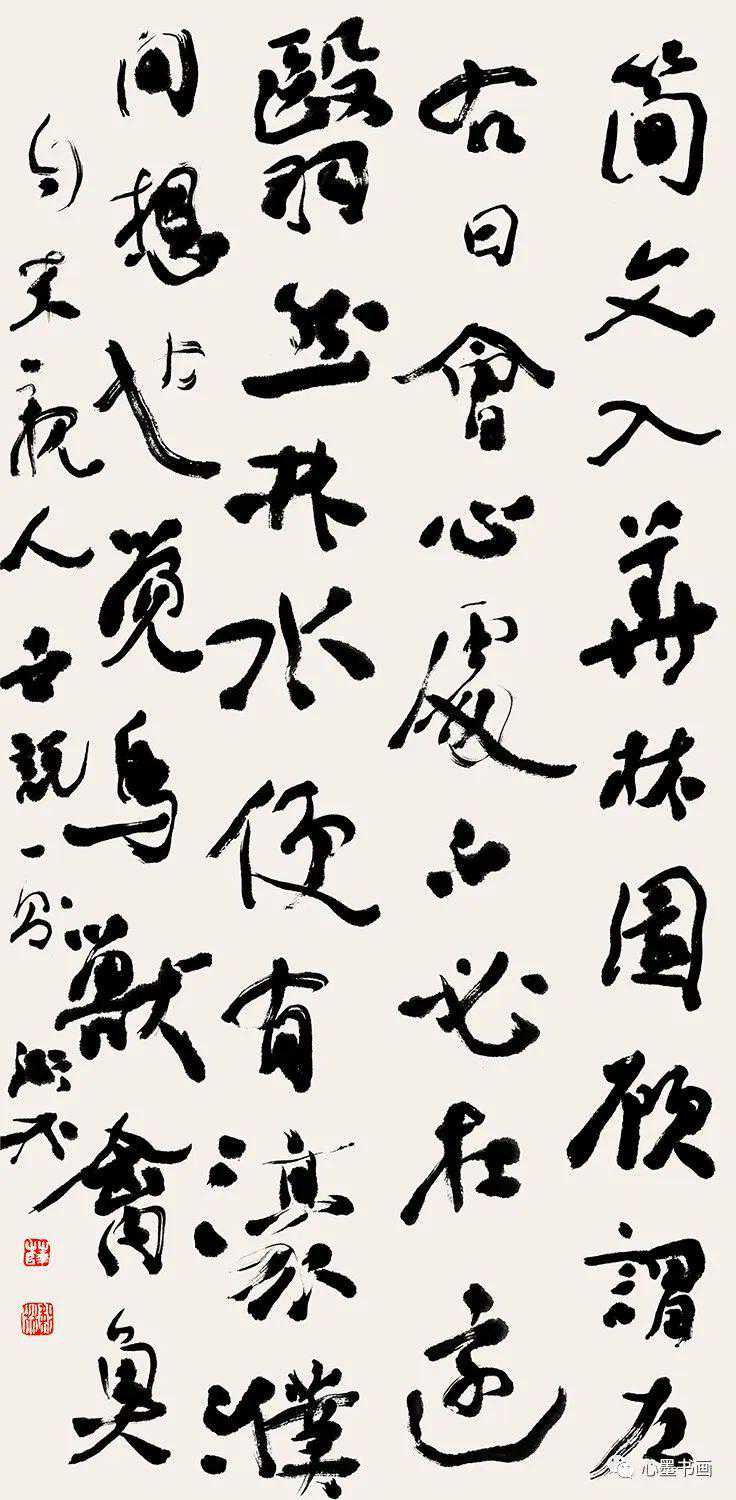 简文入華林園顾謂左
右曰會心處不必在远
翳然林水便有濠濮
间想也觉鸟獸禽鱼
自来親人 世說一則
心墨书画